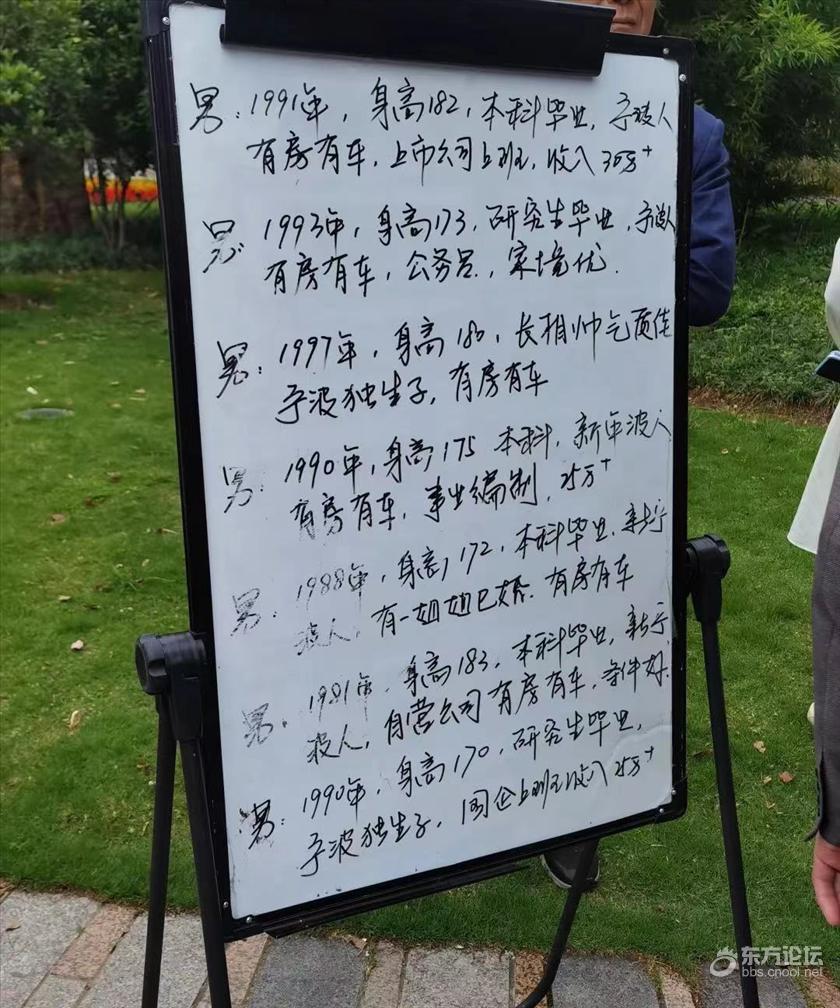 男：1991年，身高182，本科毕业，宁波人
有房有车，上市公司上班，收入30万+
男：1993年，身高173，研究生毕业，宁波人
有房有车，公务员，家境优.
男：1997年，身高180，长相帅气颜佳
宁波独生子，有房有车
男：1990年，身高175 本科，新宁波人
有房有车，事业编制，25万+
男：1988年，身高172，本科毕业，新宁
波人，有一姐姐已婚.有房有车
男：1981年，身高183，本科毕业，新宁
波人，自营公司有房有车，条件好.
男：1990年，身高170，研究生毕业，
宁波独生子，国企上班收入25万+
东方论坛
bbs.cnool.net